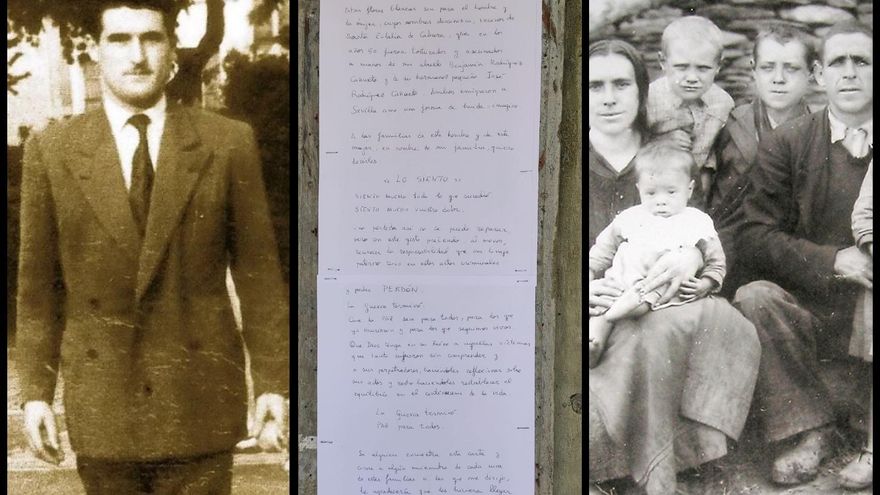 Estas flores blancas son para el hombre y
la mujer, cuyos nombres desconozco, vecinos de
Santa Eulalia de Cabrera, que en los
años 40 fueron torturados y asesinados
a manos de mi abuelo Benjamín Rodríguez
Cañueto y de su hermano pequeño José
Rodríguez Cañueto. Ambos emigraron a
Sevilla como una forma de huida-
A las familias de este hombre y de esta
mujer, en nombre de mi familia, quiero
decirles
"LO SIENTO"
SIENTO MUCHO todo lo que sucedió
SIENTO MUCHO vuestro dolor.
pérdida así no se puede reparar,
pero con este gesto pretendo, al menos,
la responsabilidad que mi linaje
paterno tuvo en estos actos criminales
y pedir PERDÓN
La Guerra terminó.
Que la PAZ sea para todos, para los que
ya murieron y para los que seguimos vivos.
Que Dios tenga en su seno a aquellas víctimas
que tanto sufrieron sin comprender y
a sus perpetradores, haciéndoles reflexionar sobre
sus actos y haciéndoles restablecer el
equilibrio en el de la vida.
La Guerra terminó
PAZ para todos.
Si alguien encuentra esta carta y
conoce a algún miembro de cada una
de estas familias a las que me dirijo,
le agradecería que les hiciera llegar